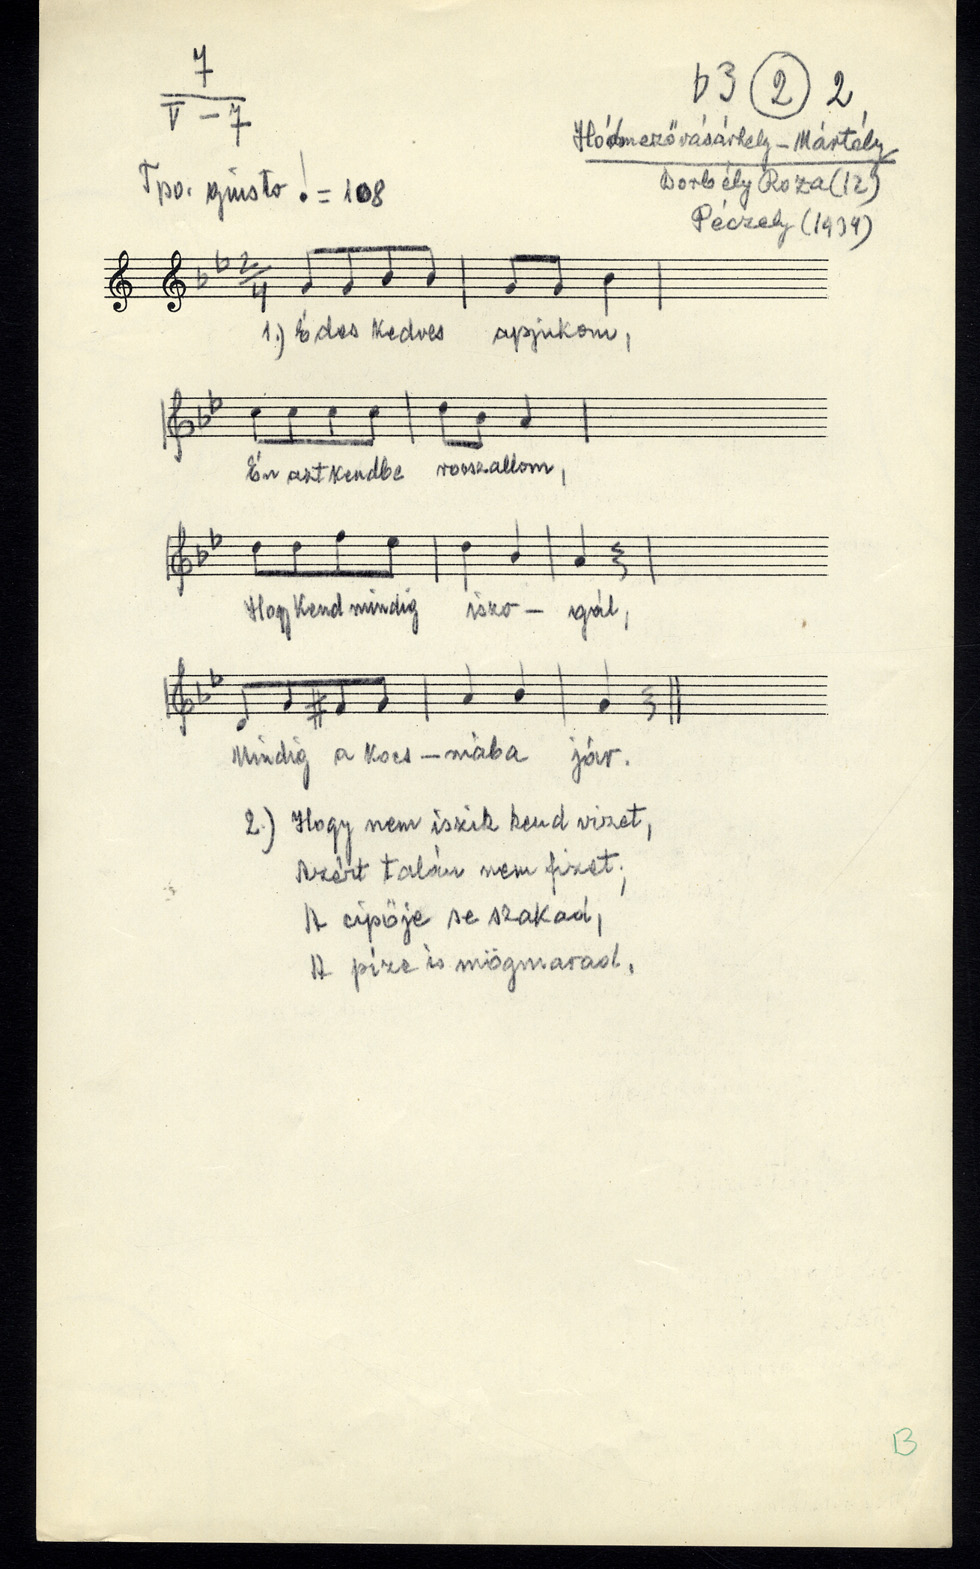 7
V – 7
b3 (2) 2
Hódmezővásárhely – Mártély
Borbély Roza (12)
Péczely (1934)
Tpo. giusto ♩ = 108
2/4
1.) Édes kedves apjukom,
Én azt kendbe rosszallom,
Hogy kend mindig iszo – gál,
Mindig a kocs – mába jár.
2.) Hogy nem iszik kend vizet,
Azért talán nem fizet;
A cipője se szakad,
A píze is mögmarad.
B